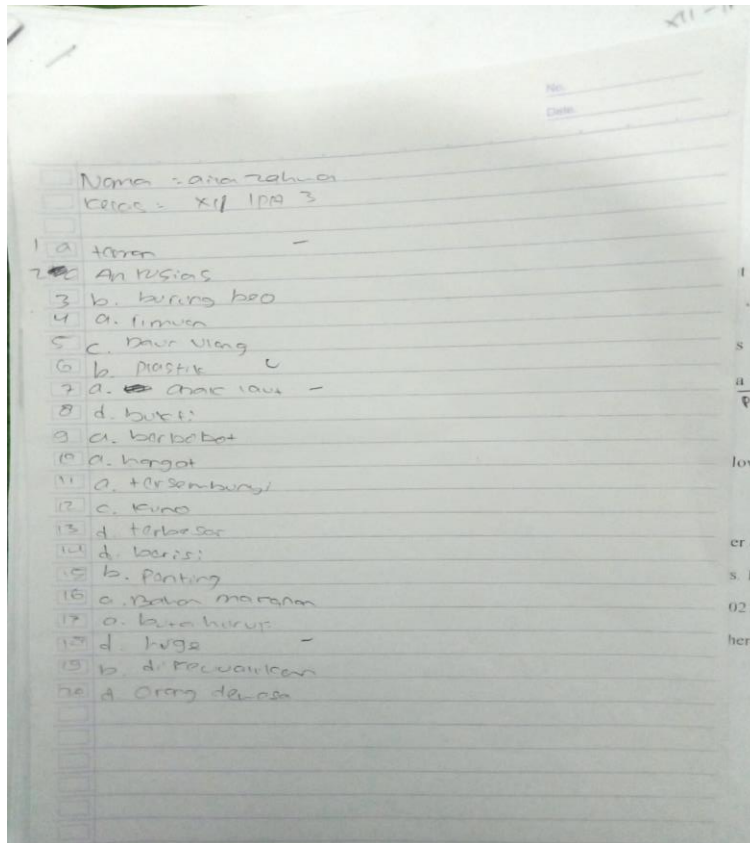 XII - 
No.
Date
Nama = aira zahwa
Kelas = XII IPA 3
1 a taman
2 c Antusias
3 b. burung beo
4 a. limuan
5 c. Daur Ulang
6 b. plastik
7 a. anak laut
8 d. bukti
9 a. berbobot
10 a. hangat
11 a. tersembunyi
12 c. kuno
13 d. terbesar
14 d. berisi
15 b. Penting
16 a. Bahan makanan
17 a. buta huruf
18 d. huge
19 b. di kecualikan
20 d orang dewasa
s
a
er
s.
02
her